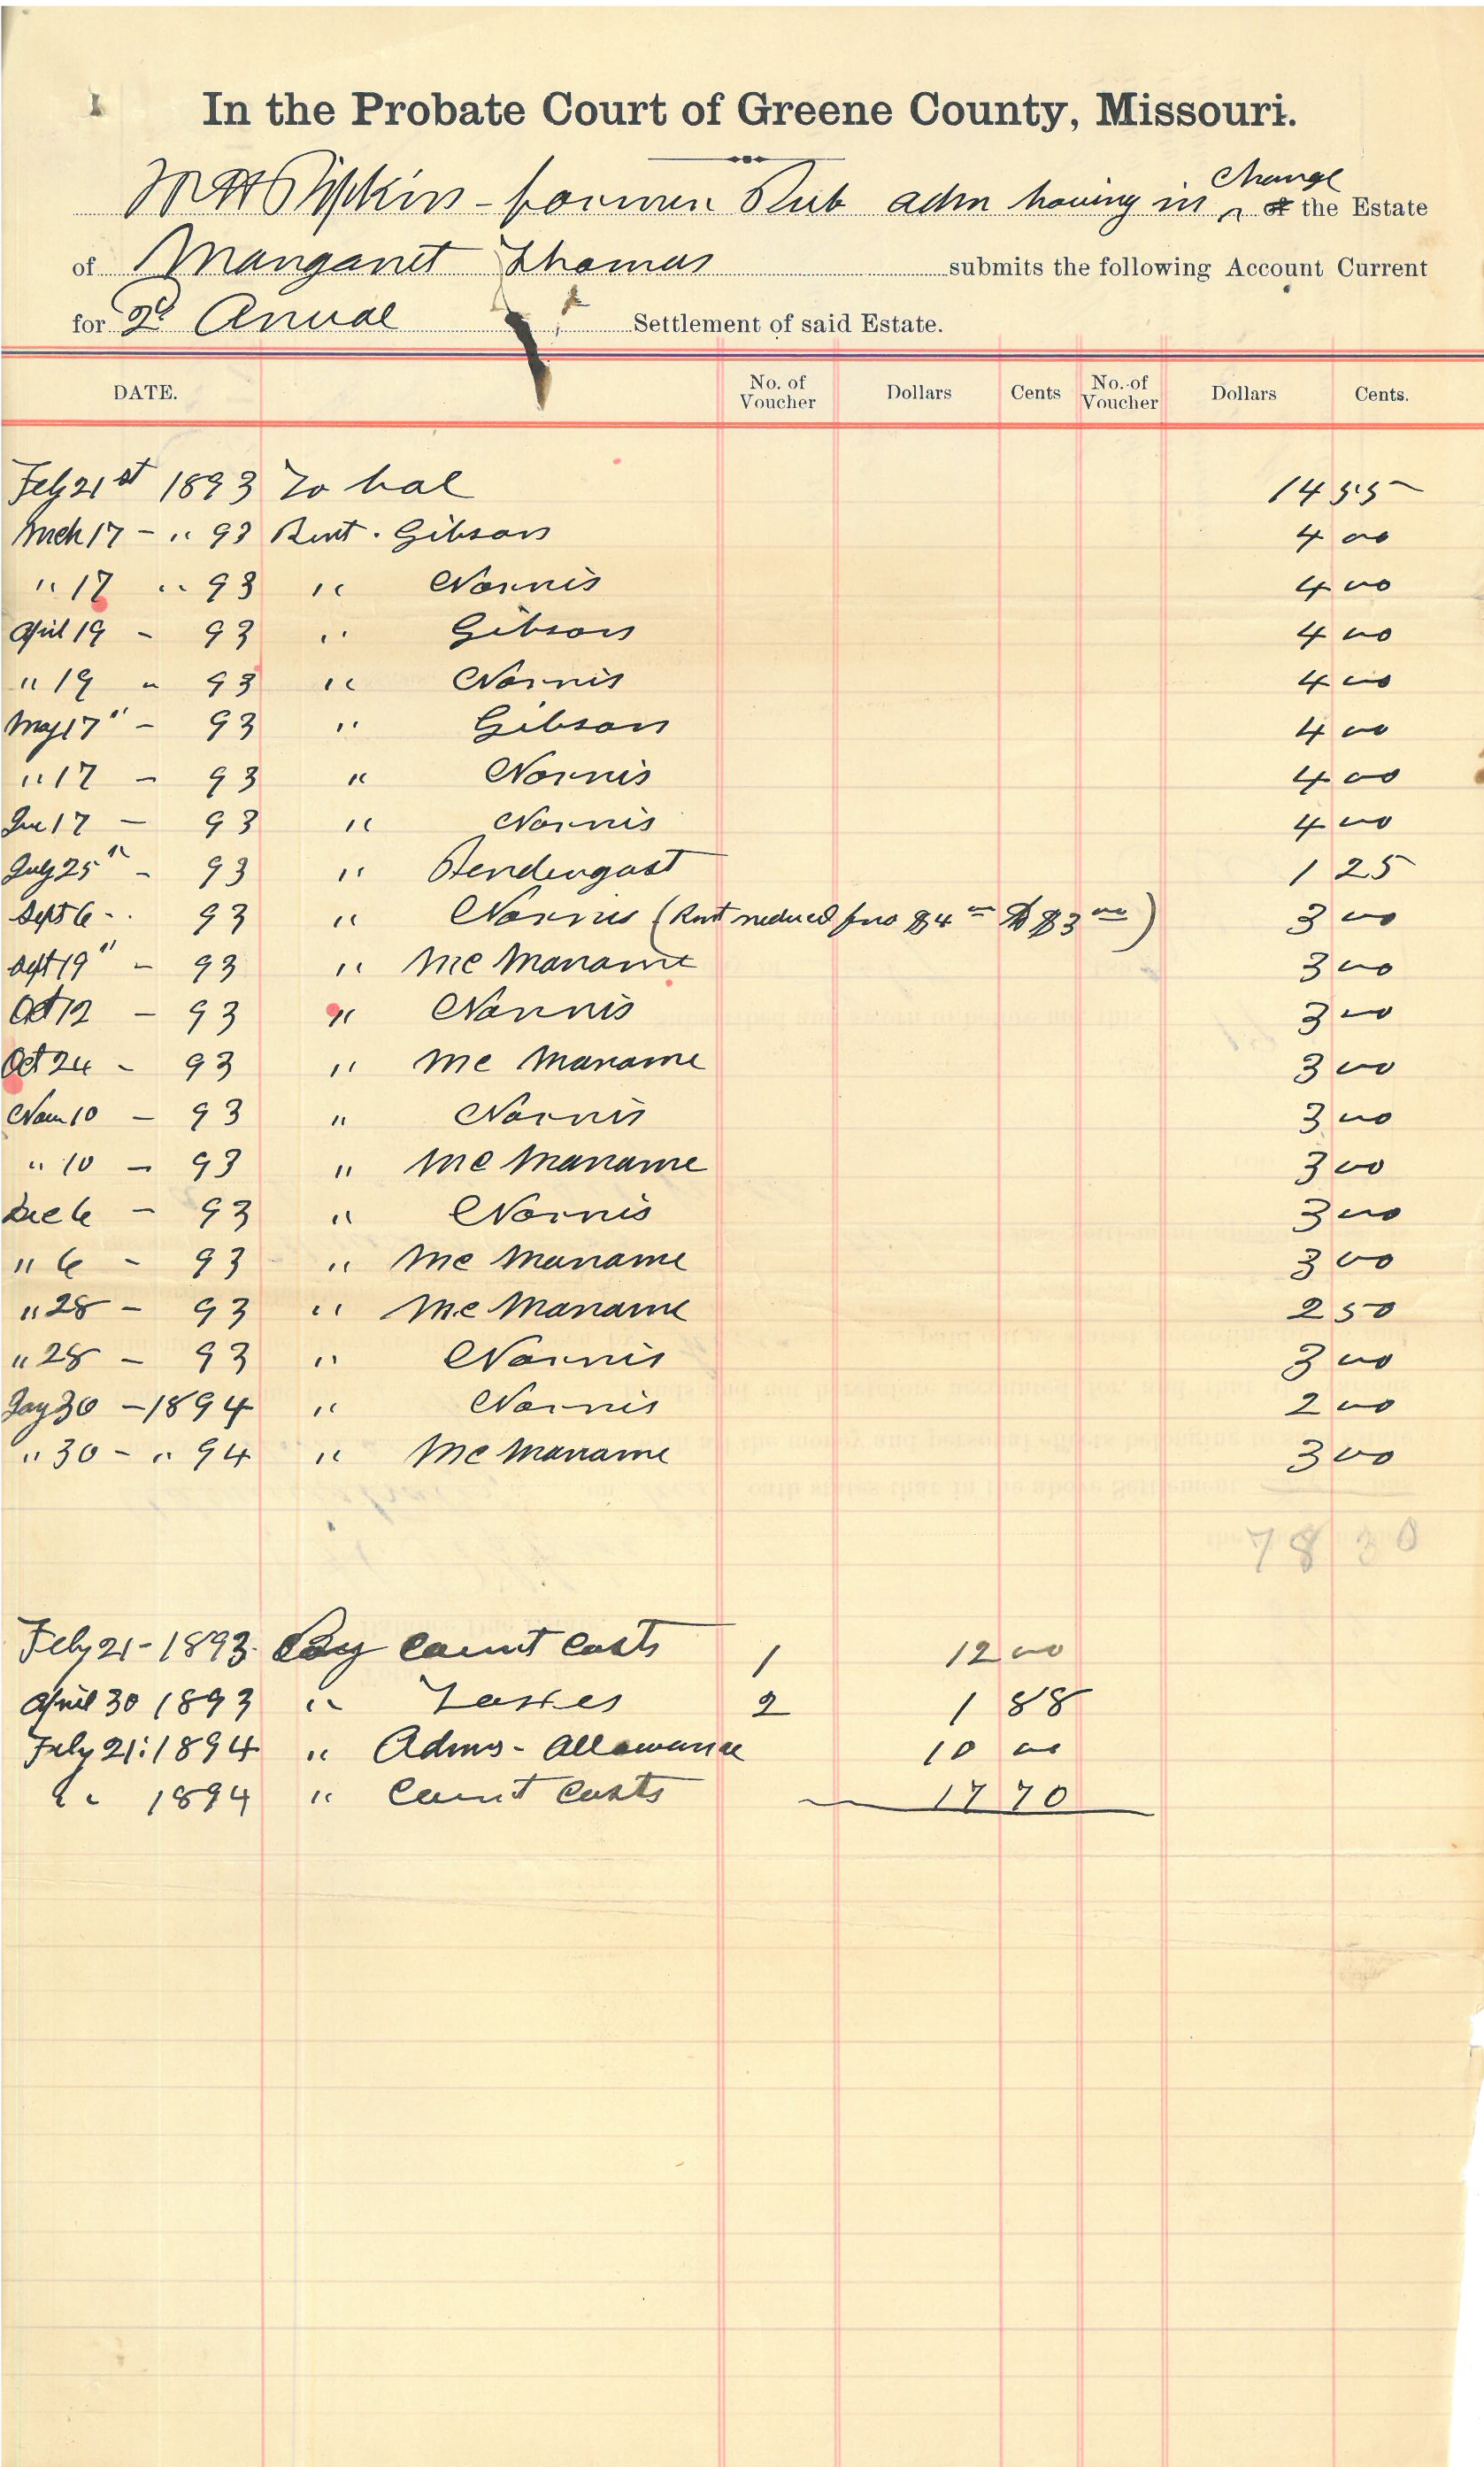 In the Probate Court of Greene County, Missouri.
Pipkin - former Pub adm having in charge of the Estate
of Margaret Thomas submits the following Account Current
for 2d Anual Settlement of said Estate.
DATE. No. of Voucher Dollars Cents No. of Voucher Dollars Cents.
Feby 21st 1893 To bal 14 55
Mch 17 - " 93 Rent. Gibson 4 00
" 17 " 93 " Norris 4 00
April 19 - 93 " Gibson 4 00
" 19 " 93 " Norris 4 00
May 17" - 93 " Gibson 4 00
" 17 - 93 " Norris 4 00
Jne 17 - 93 " Norris 4 00
July 25" - 93 " Pendergast 1 25
Sept 6 - 93 " Norris (Rent reduced from $4 00 to $3 00) 3 00
Sept 19" - 93 " Mc Maname 3 00
Oct 12 - 93 " Norris 3 00
Oct 24 - 93 " Mc Maname 3 00
Nov 10 - 93 " Norris 3 00
" 10 - 93 " Mc Maname 3 00
Dec 6 - 93 " Norris 3 00
" 6 - 93 " Mc Maname 3 00
" 28 - 93 " Mc Maname 2 50
" 28 - 93 " Norris 3 00
Jay 30 - 1894 " Norris 2 00
" 30 - " 94 " Mc Maname 3 00
78 30
Feby 21 - 1893 By Court Costs 1 12 00
April 30 1893 " Taxes 2 1 88
Feby 21: 1894 " Adms - allowance 10 00
" 1894 " Court Costs 17 70